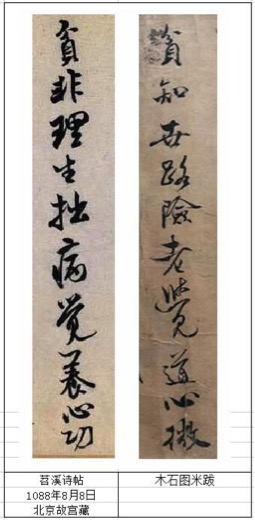 貧非理生拙病覺養心功
貧知世路險老覺道心微
苕溪诗帖
1088年8月8日
北京故宫藏
木石图米跋